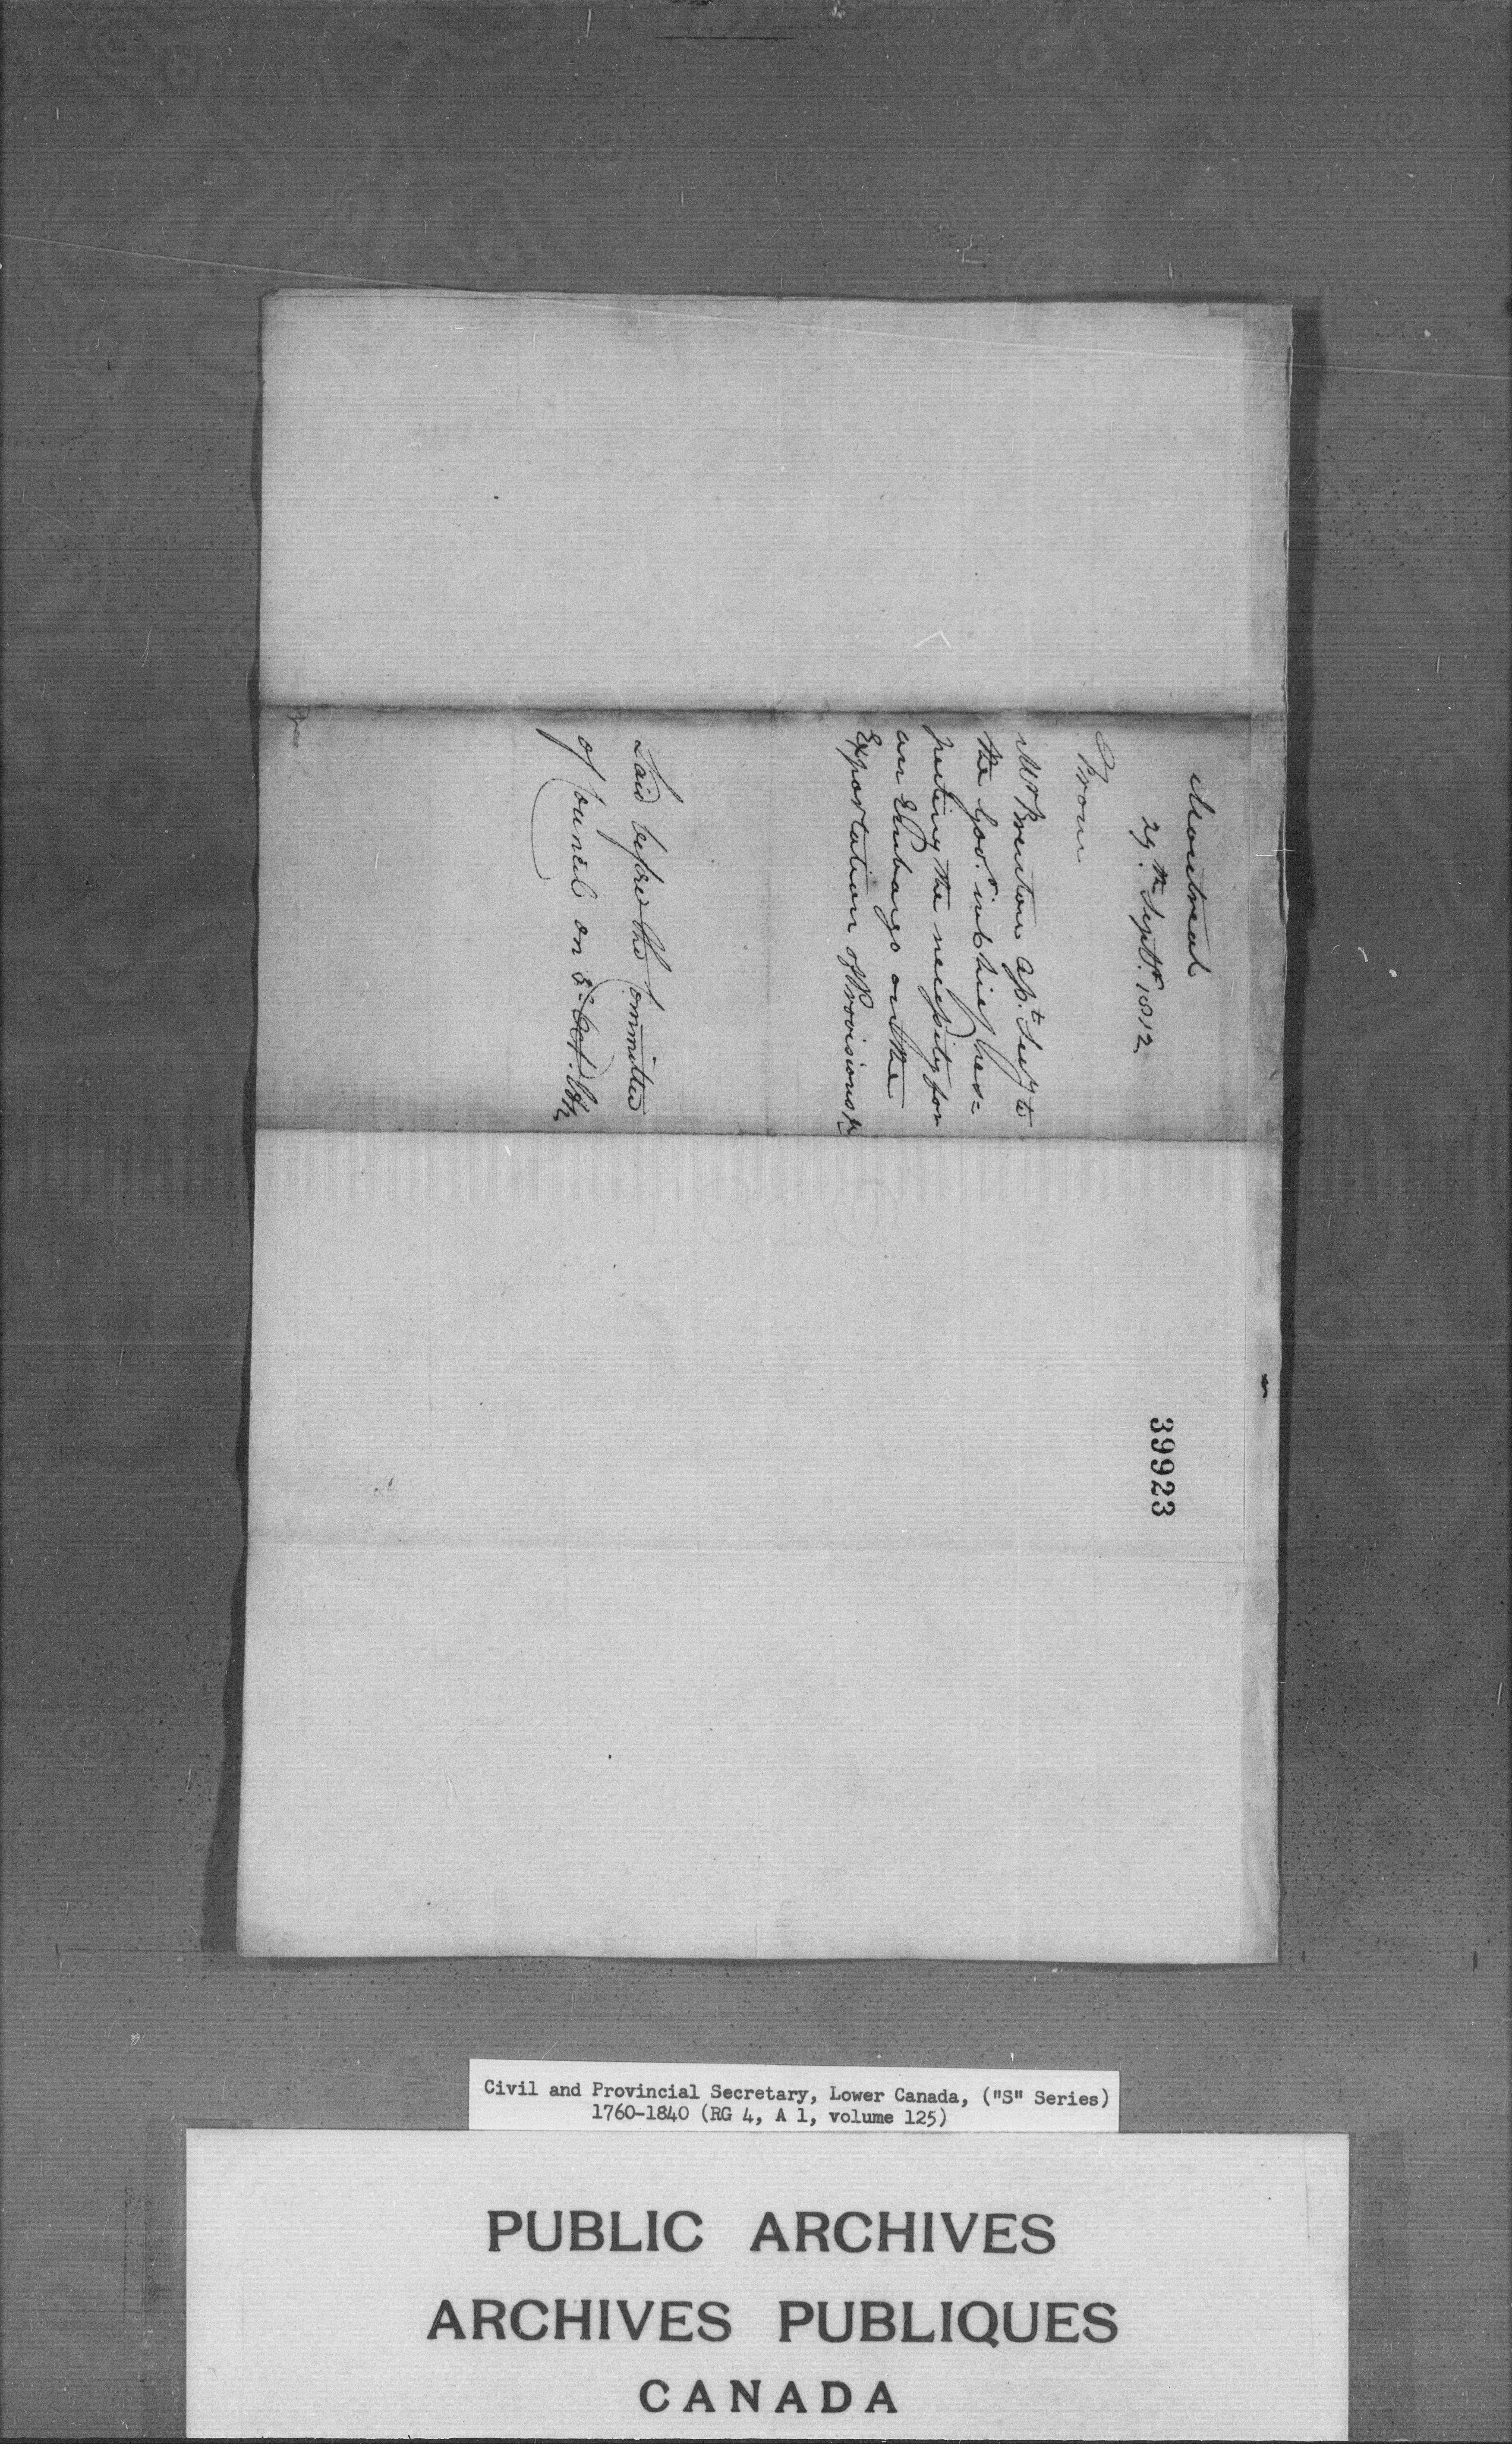 Montreal
29th Septr. 1812
From
Mr Brenton Asst. Secy to
the Govr. in Chief res=
pecting the necessity for
an Embargo on the
Exportation of Provisions &c
Laid before the Committee
of Council on 5. Oct.
39923
Civil and Provincial Secretary, Lower Canada, ("S" Series)
1760-1840 (RG 4, A 1, volume 125)
PUBLIC ARCHIVES
ARCHIVES PUBLIQUES
CANADA